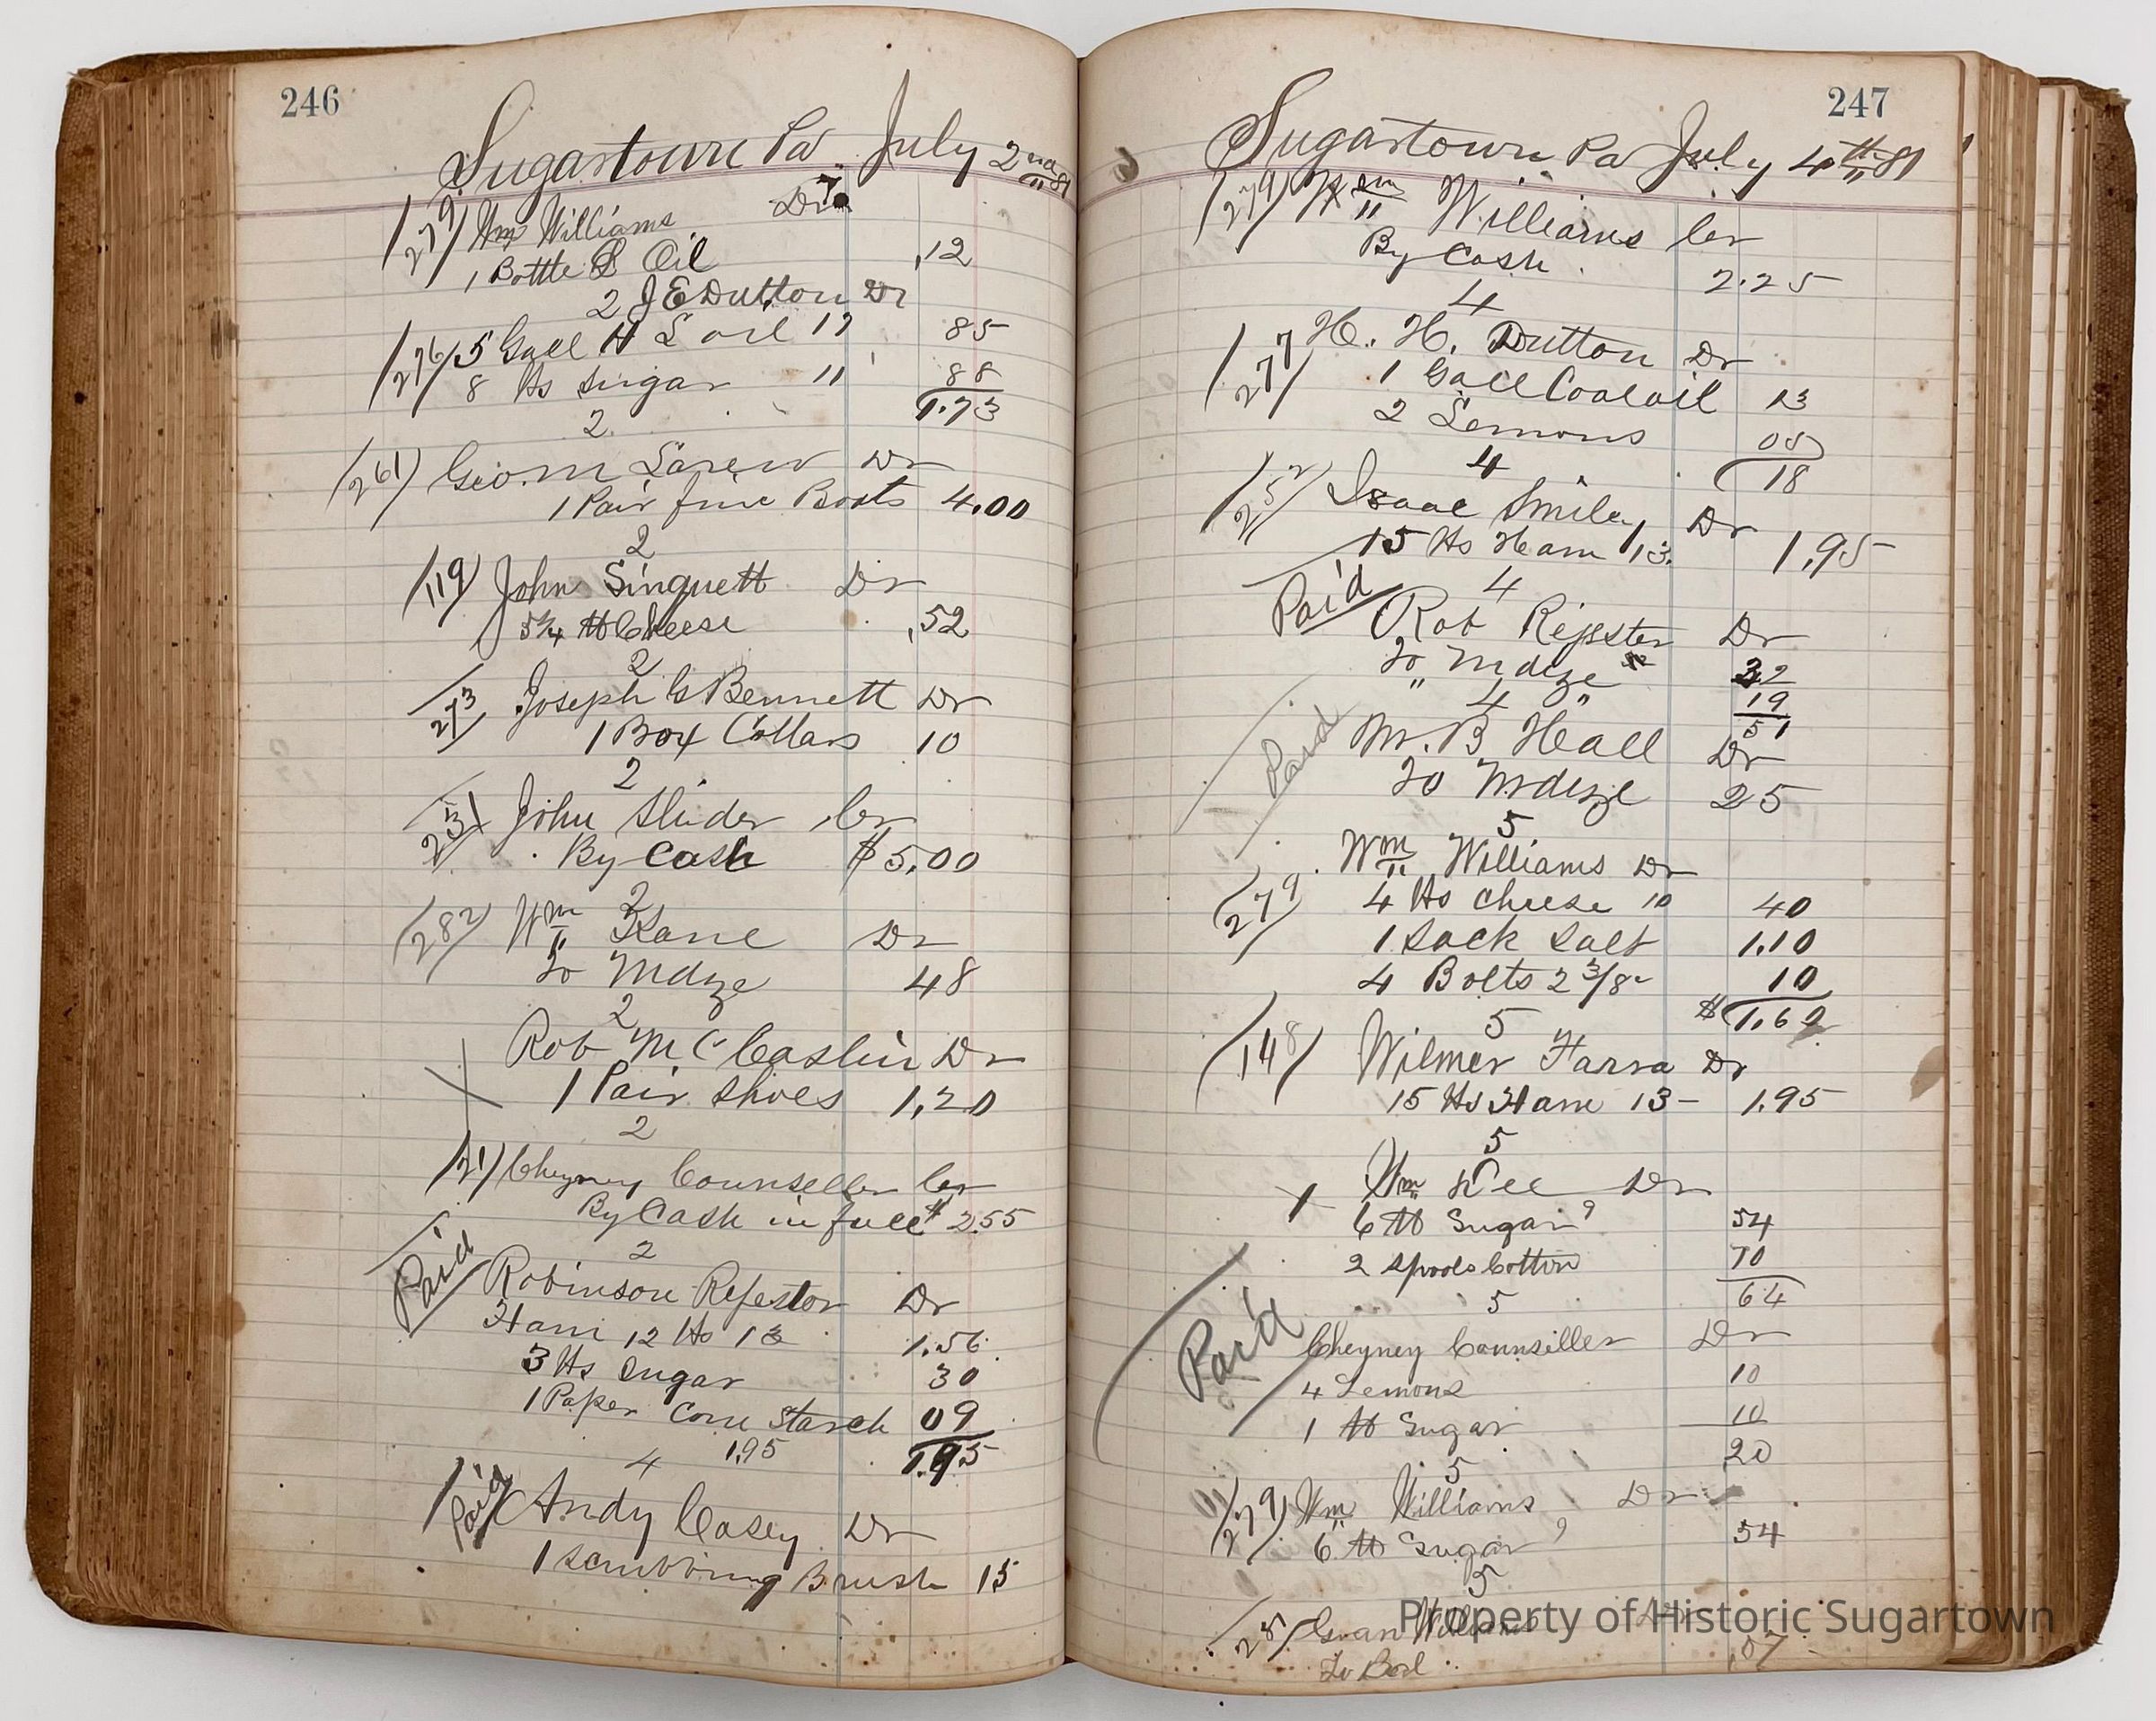 246
Sugartown Pa July 2nd 81
279 Wm Williams Dr
1 Bottle S Oil ,12
2 J E Dutton Dr
276 5 Gall H L oil 17 85
8 lbs sugar 11 88
1.73
2
261 Geo. M Dr
1 Pair fine Boots 4.00
2
119 John Singuett Dr
5 1/4 lb Cheese ,52
2
273 Joseph G Bennett Dr
1 Box Collars 10
2
251 John Slider Cr
By Cash $5.00
2
282 Wm Kane Dr
To Mdze 48
2
Rob Mc Caslin Dr
1 Pair Shoes 1,20
2
21 Cheyney Counseller Cr
By Cash in full $ 2.55
2
Paid Robinson Regestor Dr
Ham 12 lbs 13 1.56
3 lbs sugar 30
1 Paper Corn Starch 09
1.95 1.95
4
Paid Andy Casey Dr
1 Scrubbing Brush 15
247
Sugartown Pa July 4th 81
279 Wm Williams Cr
By Cash 2.25
4
277 H. H. Dutton Dr
1 Gall Coal oil 13
2 Lemons 05
18
4
252 Isaac Smiley Dr
15 lbs Ham 13 1.95
4
Paid Rob Regester Dr
To Mdze 32
" " 19
51
4
Paid M. B Hall Dr
To Mdze 25
5
279 Wm Williams Dr
4 lbs cheese 10 40
1 Sack Salt 1.10
4 Bolts 2 3/8 10
$ 1.60
5
148 Wilmer Farra Dr
15 lbs Ham 13 - 1.95
5
Wm Lee Dr
6 lb Sugar 9 54
2 Spools Cotton 10
64
5
Paid Cheyney Counsiller Dr
4 Lemons 10
1 lb Sugar 10
20
5
279 Wm Williams Dr
6 lb Sugar 9 54
5
Evan Williams
,07
Property of Historic Sugartown